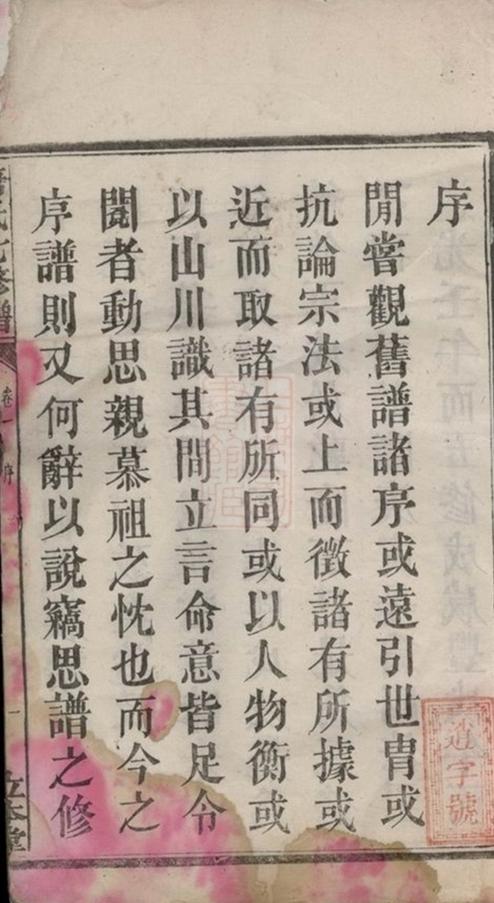 序
閒嘗觀舊譜諸序或遠引世胄或
抗論宗法或上而徵諸有所據或
近而取諸有所同或以人物衡或
以山川識其間立言命意皆足令
閱者動思親慕祖之忱也而今之
序譜則又何辭以說竊思譜之修
氏七修譜
卷一
序
一
立本堂
道字號